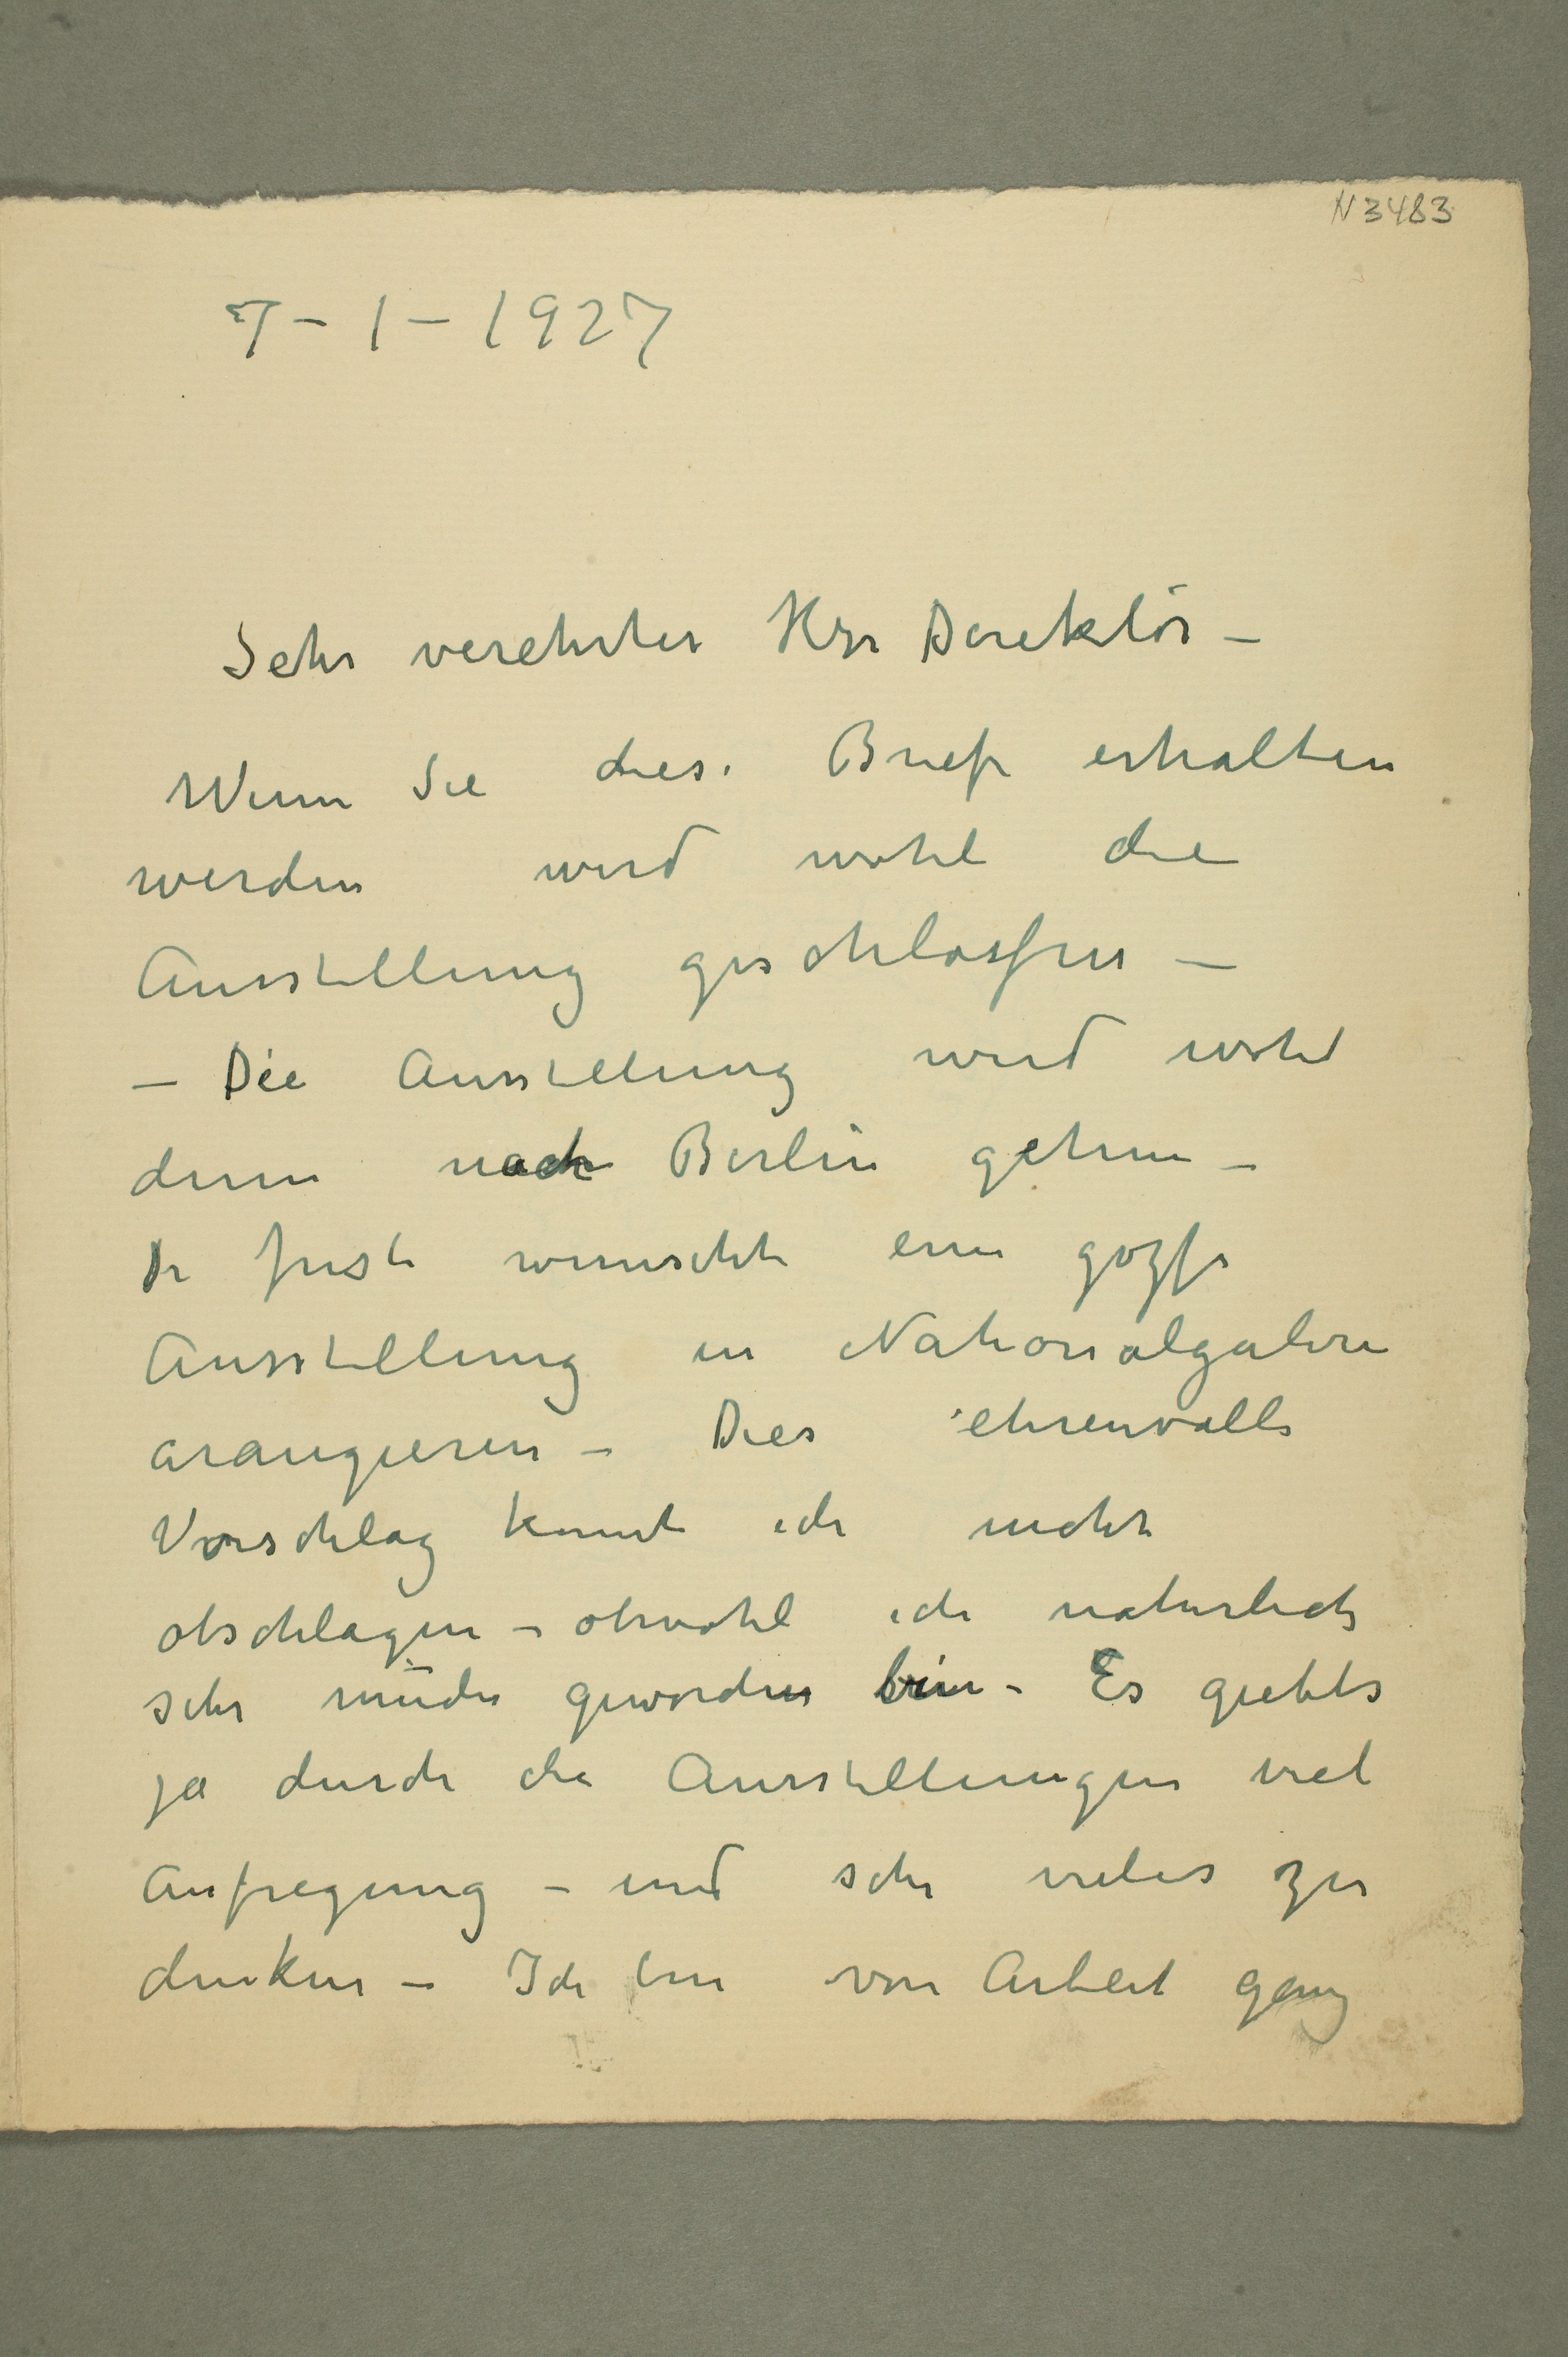 N 3483
7 – 1 – 1927
Sehr verehrter Herr Direktör –
Wenn Sie diese Briefe erhalten
werden wird wohl die
Ausstellung geschlossen –
– Die Ausstellung wird wohl
denn nach Berlin gehen –
Dr Justi wünschte eine
Ausstellung in Nationalgalerie
arangieren – Dies ehrenvolle
Vorschlag konnte ich nicht
abschlagen – obwohl ich naturlich
sehr müde geworden bin – Es giebts
ja durch die Ausstellungen viel
Aufregung – und sehr vieles zu
denken – Ich bin von Arbeit ganz